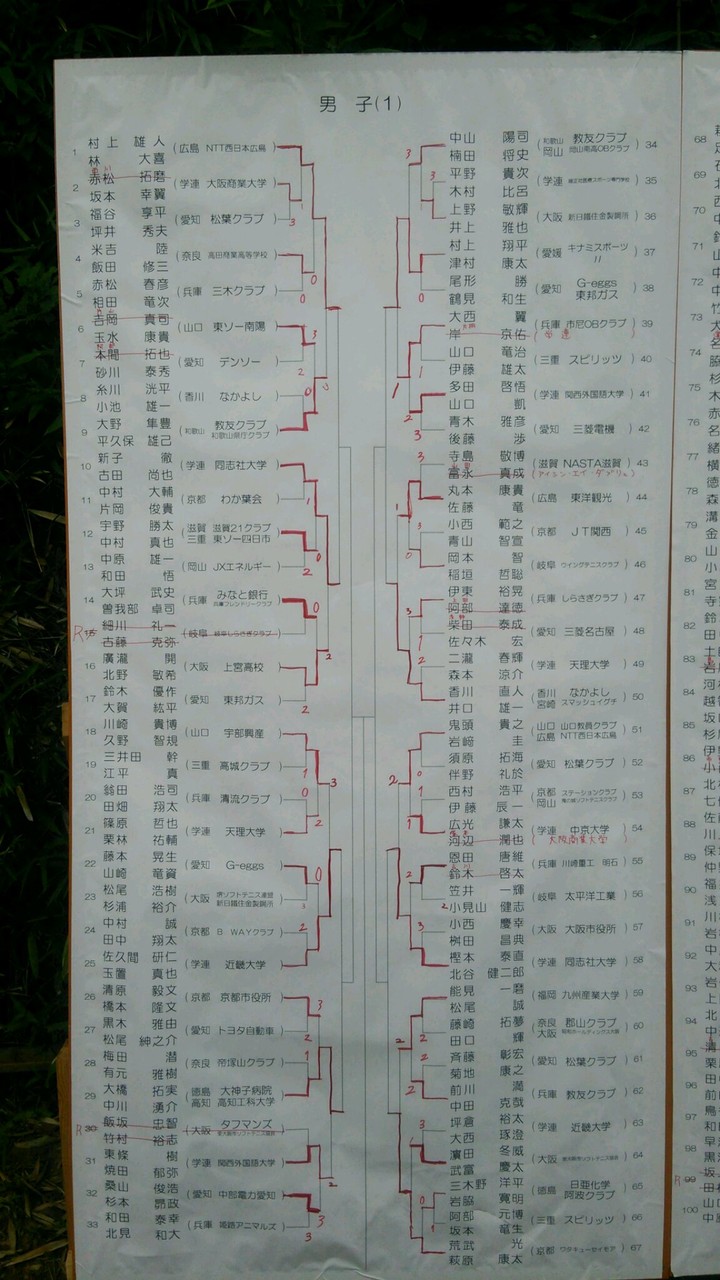 男子(1)
1 村上 雄人 (広島 NTT西日本広島)
林 大喜
2 赤松 拓磨 (学連 大阪商業大学)
坂本 幸翼
3 福谷 享平 (愛知 松葉クラブ)
坪井 秀夫
4 米吉 陸 (奈良 高田商業高等学校)
飯田 修三
5 赤松 春彦 (兵庫 三木クラブ)
相田 竜次
6 吉岡 真司 (山口 東ソー南陽)
玉水 康貴
7 本間 拓也 (愛知 デンソー)
砂川 泰秀
8 糸川 洸平 (香川 なかよし)
小池 雄一
9 大野 隼豊 (和歌山 教友クラブ 和歌山県庁クラブ)
平久保 雄己
10 新子 徹 (学連 同志社大学)
古田 尚也
11 中村 大輔 (京都 わか葉会)
片岡 俊貴
12 宇野 勝太 (滋賀 滋賀21クラブ 三重 東ソー四日市)
中村 真也
13 中原 雄一 (岡山 JXエネルギー)
和田 悟
14 大坪 武史 (兵庫 みなと銀行 兵庫フレンドリークラブ)
曽我部 卓司
R 15 細川 礼一 (岐阜 岐阜しらさぎクラブ)
古藤 克弥
16 廣瀧 開 (大阪 上宮高校)
北野 敏希
17 鈴木 優作 (愛知 東邦ガス)
大賀 紘平
18 川崎 貴博 (山口 宇部興産)
久野 智規
19 三井田 幹 (三重 高城クラブ)
江平 真
20 翁田 浩司 (兵庫 清流クラブ)
田畑 翔太
21 篠原 哲也 (学連 天理大学)
栗林 祐輔
22 藤本 晃生 (愛知 G-eggs)
山崎 竜資
23 松尾 浩樹 (大阪 堺ソフトテニス連盟 新日鐵住金製鋼所)
杉浦 裕介
24 中村 誠 (京都 B WAYクラブ)
田中 翔太
25 佐久間 研仁 (学連 近畿大学)
玉置 真也
26 清原 毅文 (京都 京都市役所)
橋本 隆文
27 黒木 雅由 (愛知 トヨタ自動車)
松尾 紳之介
28 梅田 潜 (奈良 帝塚山クラブ)
有元 雅樹
29 大橋 拓実 (徳島 大神子病院 高知 高知工科大学)
中川 湧介
R 30 飯坂 忠智 (大阪 タフマンズ)
竹村 裕志
31 東條 樹 (学連 関西外国語大学)
焼田 郁弥
32 桑山 俊浩 (愛知 中部電力愛知)
杉本 昂政
33 和田 泰幸 (兵庫 姫路アニマルズ)
北見 和大
中山 陽司 (和歌山 教友クラブ 岡山 岡山南高OBクラブ) 34
楠田 将史
平野 貴次 (学連) 35
木村 比呂
上野 敏輝 (大阪 新日鐵住金製鋼所) 36
井上 雅也
村上 翔平 (愛媛 キナミスポーツ 〃) 37
津村 康太
尾形 勝 (愛知 G-eggs 東邦ガス) 38
鶴見 和生
大西 翼 (兵庫 市尼OBクラブ) 39
岸 京佑
山口 竜治 (三重 スピリッツ) 40
伊藤 雄太
多田 啓悟 (学連 関西外国語大学) 41
山口 凱
青木 雅彦 (愛知 三菱電機) 42
後藤 渉
寺島 敬博 (滋賀 NASTA滋賀) 43
富永 真成 (アイシン・エイ・ダブリュ)
丸本 康貴 (広島 東洋観光) 44
佐藤 竜
小西 範之 (京都 JT関西) 45
青山 智宣
岡本 智 (岐阜 ウイングテニスクラブ) 46
稲垣 哲聡
伊東 裕晃 (兵庫 しらさぎクラブ) 47
阿部 達徳
柴田 泰成 (愛知 三菱名古屋) 48
佐々木 宏
二瀧 春輝 (学連 天理大学) 49
森本 涼介
香川 直人 (香川 なかよし 宮崎 スマッシュイグチ) 50
井口 雄一
鬼頭 貴之 (山口 山口教員クラブ 広島 NTT西日本広島) 51
岩﨑 圭
須原 拓海 (愛知 松葉クラブ) 52
伴野 礼於
西村 浩平 (京都 ステーションクラブ 岡山) 53
伊藤 辰一
広光 謙太 (学連 中京大学) 54
河辺 潤也 大阪商業大学)
恩田 唐維 (兵庫 川崎重工 明石) 55
鈴木 啓太
笠井 一輝 (岐阜 太平洋工業) 56
小見山 健志
小西 慶幸 (大阪 大阪市役所) 57
桝田 昌典
樫本 泰直 (学連 同志社大学) 58
北谷 健二郎
能見 一磨 (福岡 九州産業大学) 59
松尾 誠
藤崎 拓夢 (奈良 郡山クラブ 大阪) 60
田口 輝
斉藤 彰宏 (愛知 松葉クラブ) 61
菊地 康之
前川 満 (兵庫 教友クラブ) 62
中田 克哉
坪倉 裕太 (学連 近畿大学) 63
大西 琢澄
濱田 冬威 (大阪) 64
武富 慶太
三木野 洋平 (徳島 日亜化学 阿波クラブ) 65
岩脇 寛明
阿部 元博 (三重 スピリッツ) 66
坂本 竜生
荒武 光 (京都 ワタキューセイモア) 67
萩原 康太
68
69
70
71
72
73
74
75
76
77
78
79
80
81
82
83
84
85
86
87
88
89
90
91
92
93
94
95
96
97
98
R 99
100